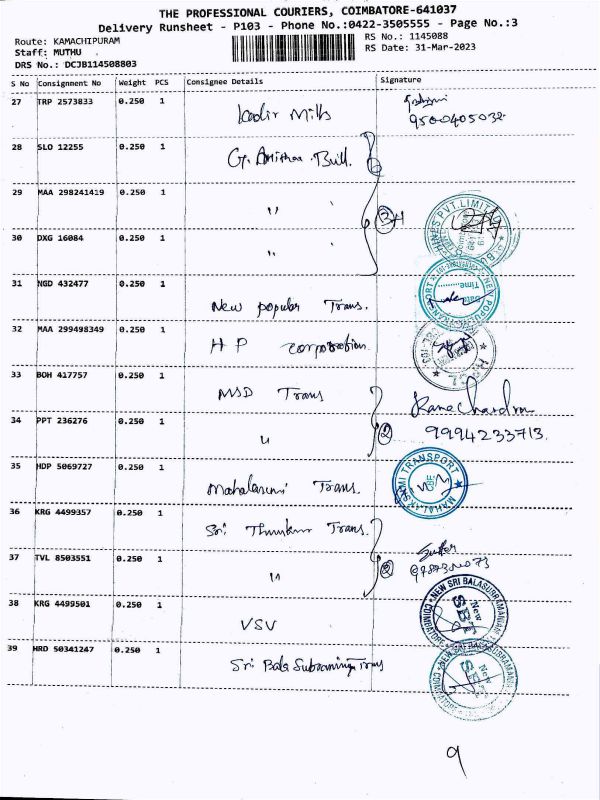 THE PROFESSIONAL COURIERS, COIMBATORE-641037
Delivery Runsheet - P103 - Phone No.:0422-3505555 - Page No.:3
Route: KAMACHIPURAM
RS No.: 1145088
Staff: MUTHU
RS Date: 31-Mar-2023
DRS No.: DCJB114508803
S No Consignment No Weight PCS Consignee Details Signature
27 TRP 2573833 0.250 1 Kadir Mills
9500405032
28 SLO 12255 0.250 1 G. Amithaa Bill.
29 MAA 298241419 0.250 1 " 3
30 DXG 16084 0.250 1 "
31 NGD 432477 0.250 1 New popular Trans.
32 MAA 299498349 0.250 1 H P corporation
33 BOH 417757 0.250 1 MSD Trans
Ramachandran
34 PPT 236276 0.250 1 " 2 9994233713.
35 HDP 5069727 0.250 1 Mahalaxmi Trans.
MAHALAKSHMI TRANSPORT
36 KRG 4499357 0.250 1 Sri Trans.
37 TVL 8503551 0.250 1 " 2
38 KRG 4499501 0.250 1 VSV
NEW SRI BALASUBRAMANIAM COIMBATORE
New SBT
39 HRD 50341247 0.250 1 Sri Bala Subramaniya Trans
9